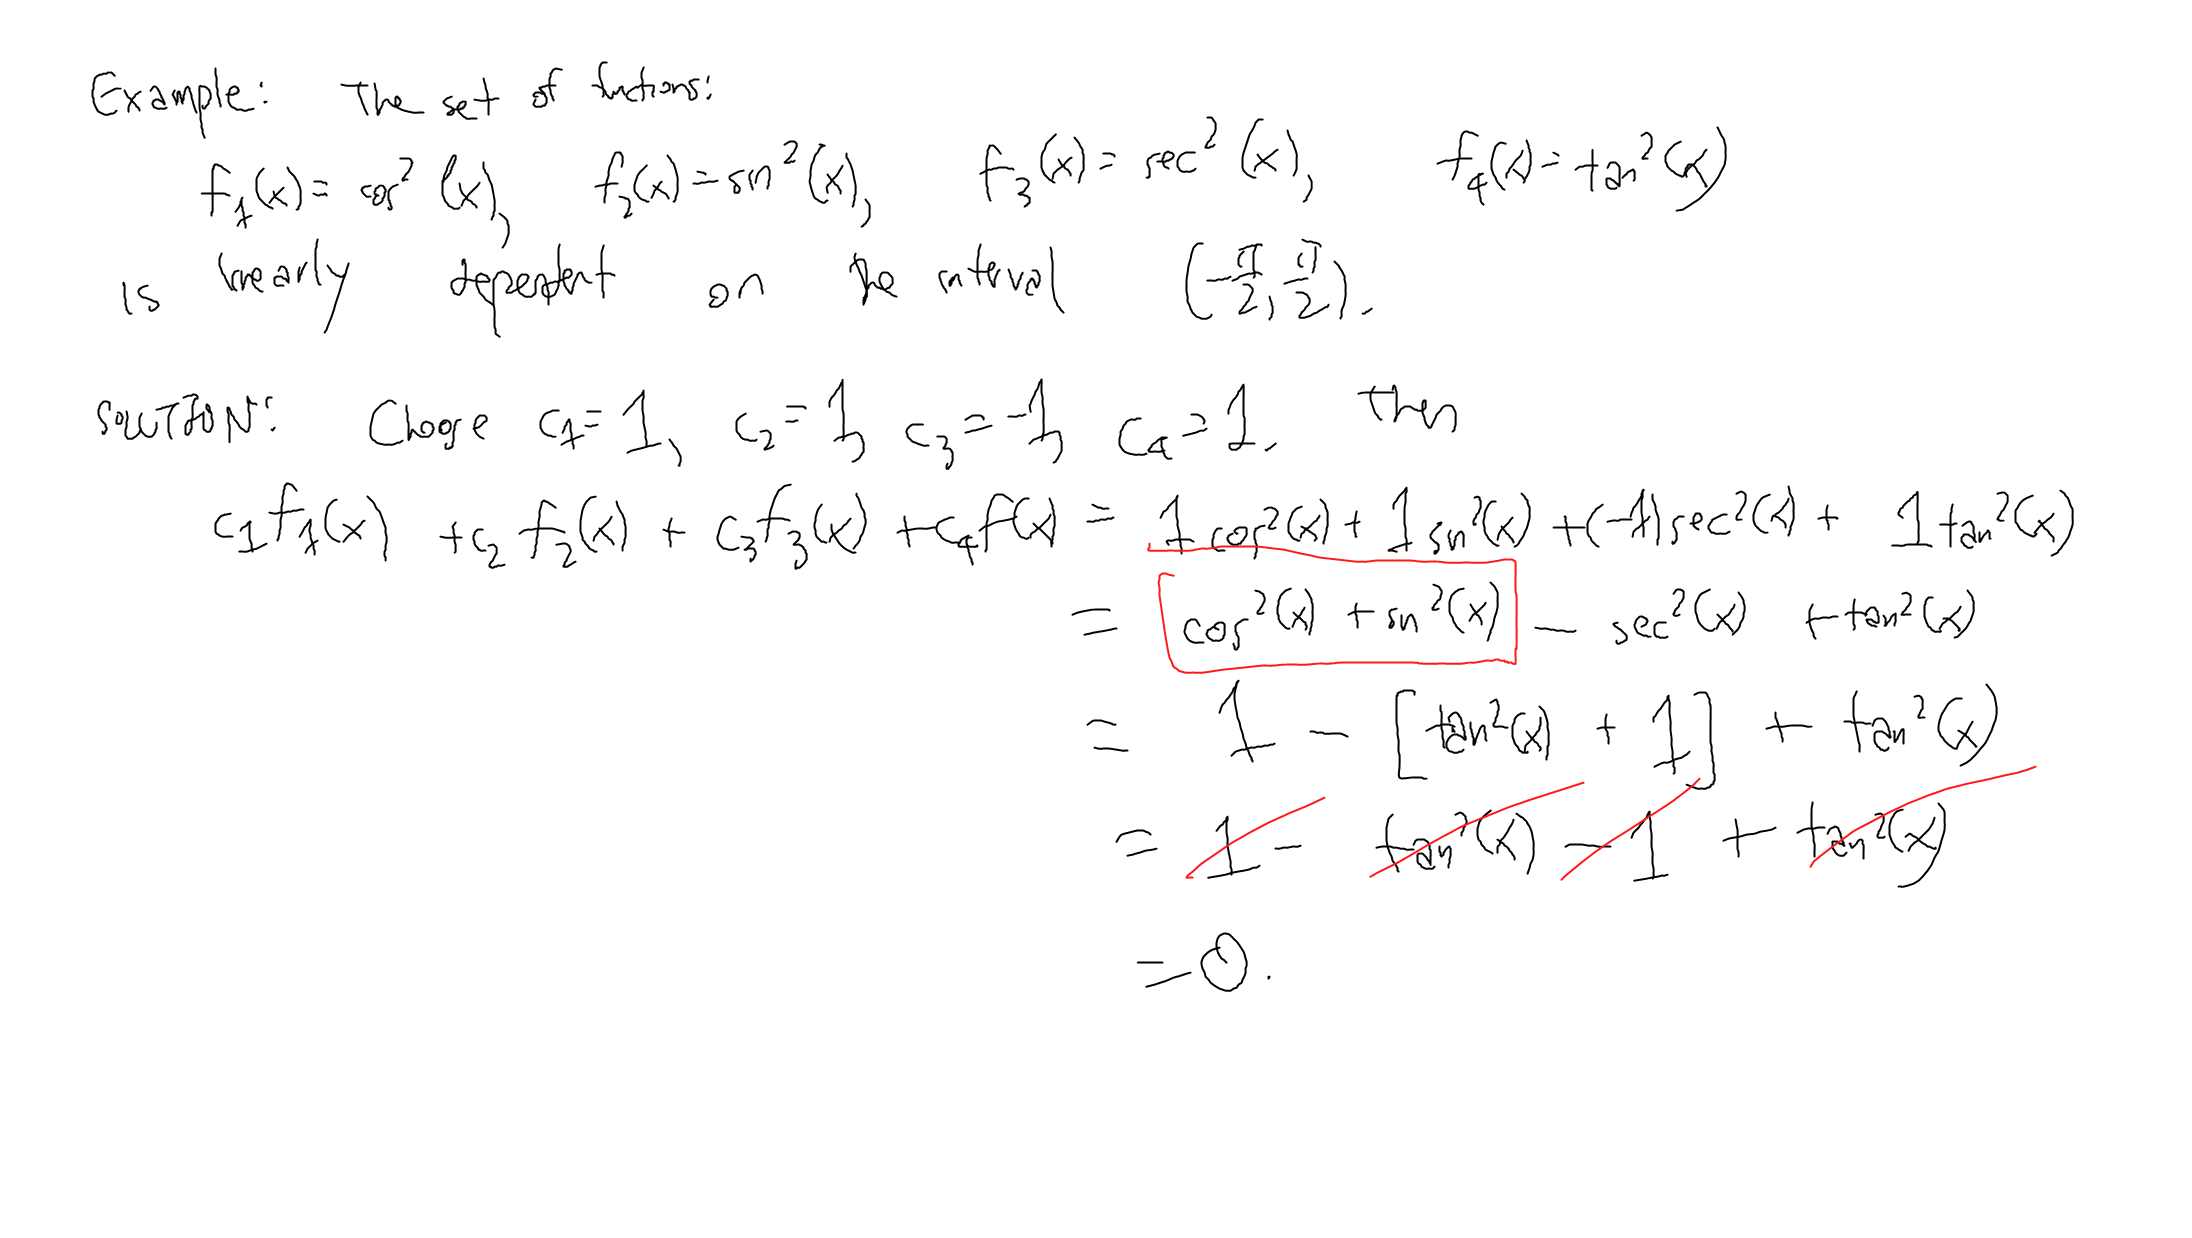 Example: The set of functions:
f₁(x) = cos²(x), f₂(x) = sin²(x), f₃(x) = sec²(x), f₄(x) = tan²(x)
is linearly dependent on the interval (-π/2, π/2).
SOLUTION: Choose c₁ = 1, c₂ = 1, c₃ = -1, c₄ = 1. Then
c₁f₁(x) + c₂f₂(x) + c₃f₃(x) + c₄f(x) = 1cos²(x) + 1sin²(x) + (-1)sec²(x) + 1tan²(x)
= cos²(x) + sin²(x) - sec²(x) + tan²(x)
= 1 - [tan²(x) + 1] + tan²(x)
= 1 - tan²(x) - 1 + tan²(x)
= 0.